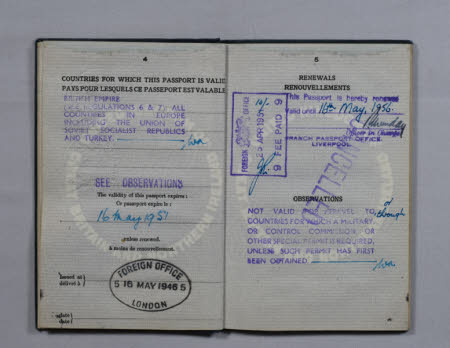 4
COUNTRIES FOR WHICH THIS PASSPORT IS VALID
PAYS POUR LESQUELS CE PASSEPORT EST VALABLE
BRITISH EMPIRE
(SEE REGULATIONS 6 & 7); ALL
COUNTRIES IN EUROPE
INCLUDING THE UNION OF
SOVIET SOCIALIST REPUBLICS
AND TURKEY.
SEE OBSERVATIONS
The validity of this passport expires:
Ce passeport expire le:
16 May 1951
unless renewed.
à moins de renouvellement.
Issued at
délivré à
FOREIGN OFFICE
5 16 MAY 1946 5
LONDON
date
date
5
RENEWALS
RENOUVELLEMENTS
This Passport is hereby renewed
Valid until 16th May, 1956.
BRANCH PASSPORT OFFICE
LIVERPOOL.
FOREIGN OFFICE
10/-
25 APR 1951
9 FEE PAID 9
CANCELLED
OBSERVATIONS
NOT VALID FOR TRAVEL TO or through
COUNTRIES FOR WHICH A MILITARY
OR CONTROL COMMISSION OR
OTHER SPECIAL PERMIT IS REQUIRED,
UNLESS SUCH PERMIT HAS FIRST
BEEN OBTAINED.